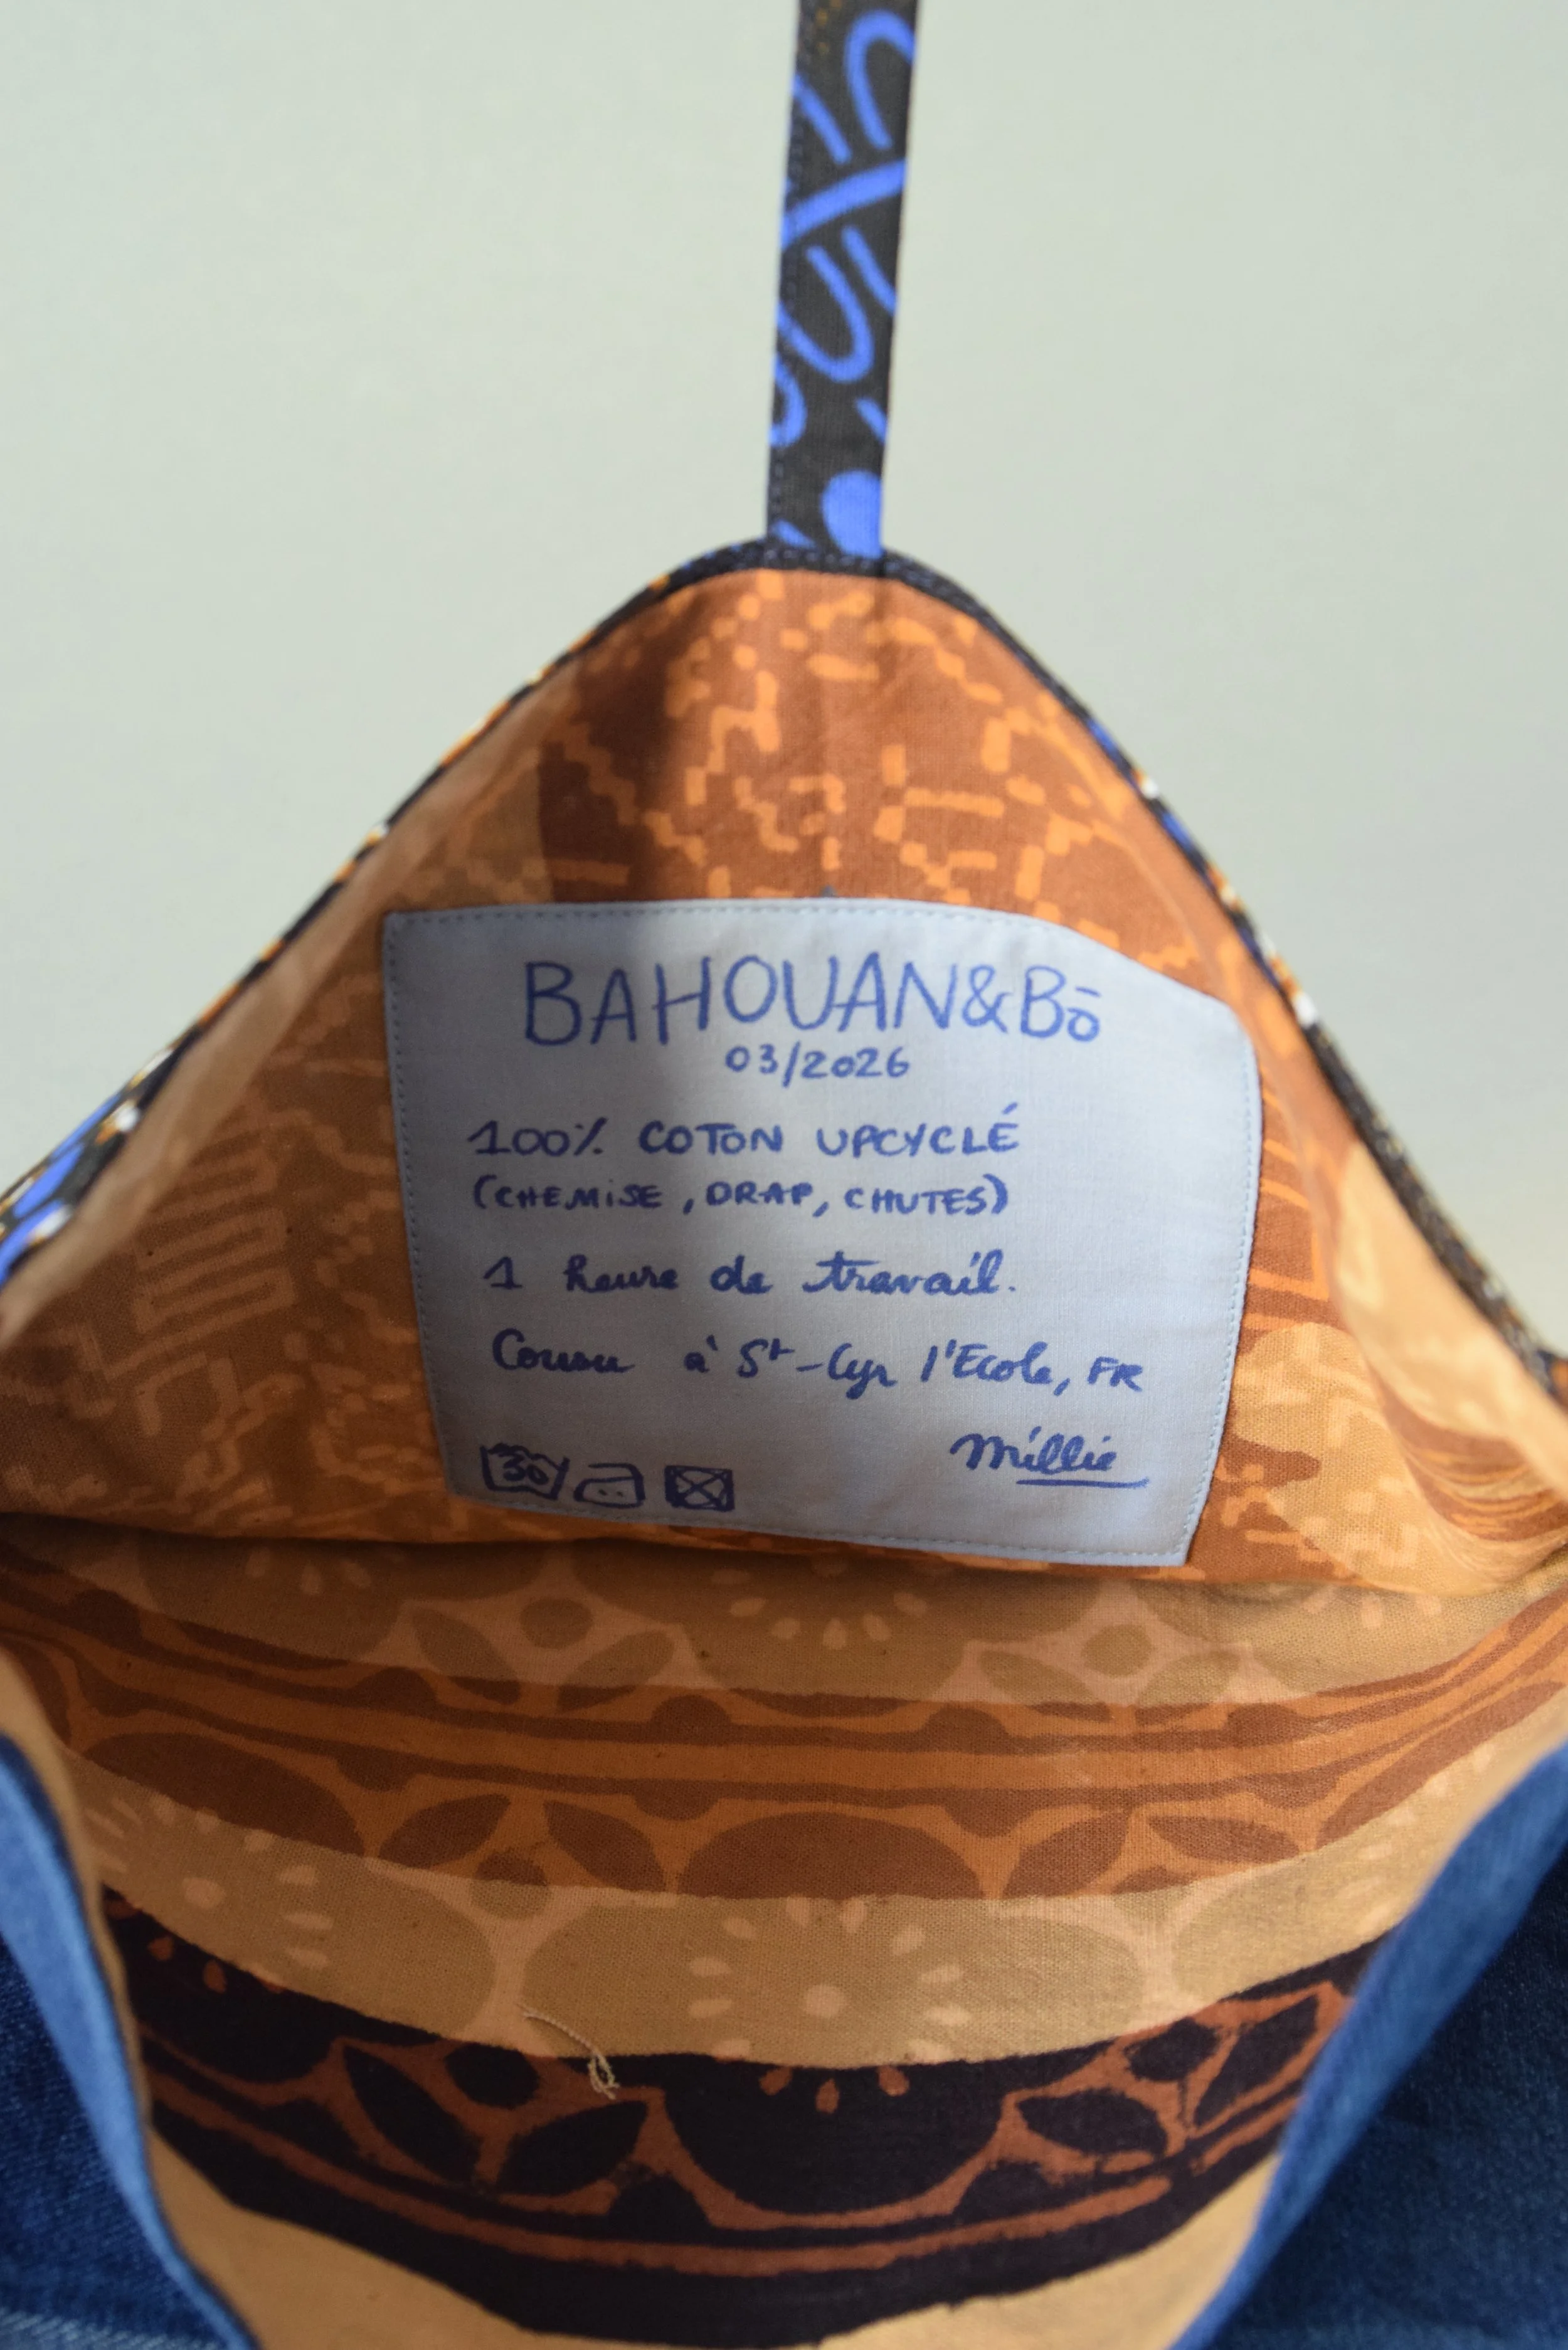 BAHOUAN&Bō
03/2026
100% COTON UPCYCLÉ
(CHEMISE, DRAP, CHUTES)
1 heure de travail.
Cousu à St-Cyr l'Ecole, FR
Millie
30